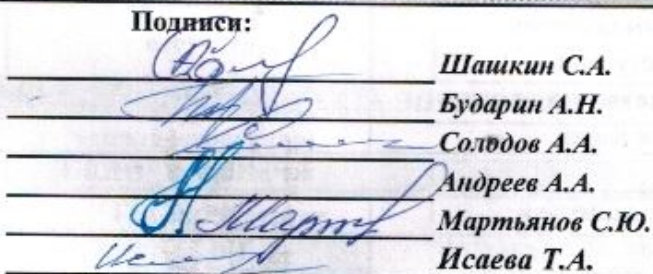 Подписи:
Шашкин С.А.
Бударин А.Н.
Солодов А.А.
Андреев А.А.
Мартьянов С.Ю.
Исаева Т.А.